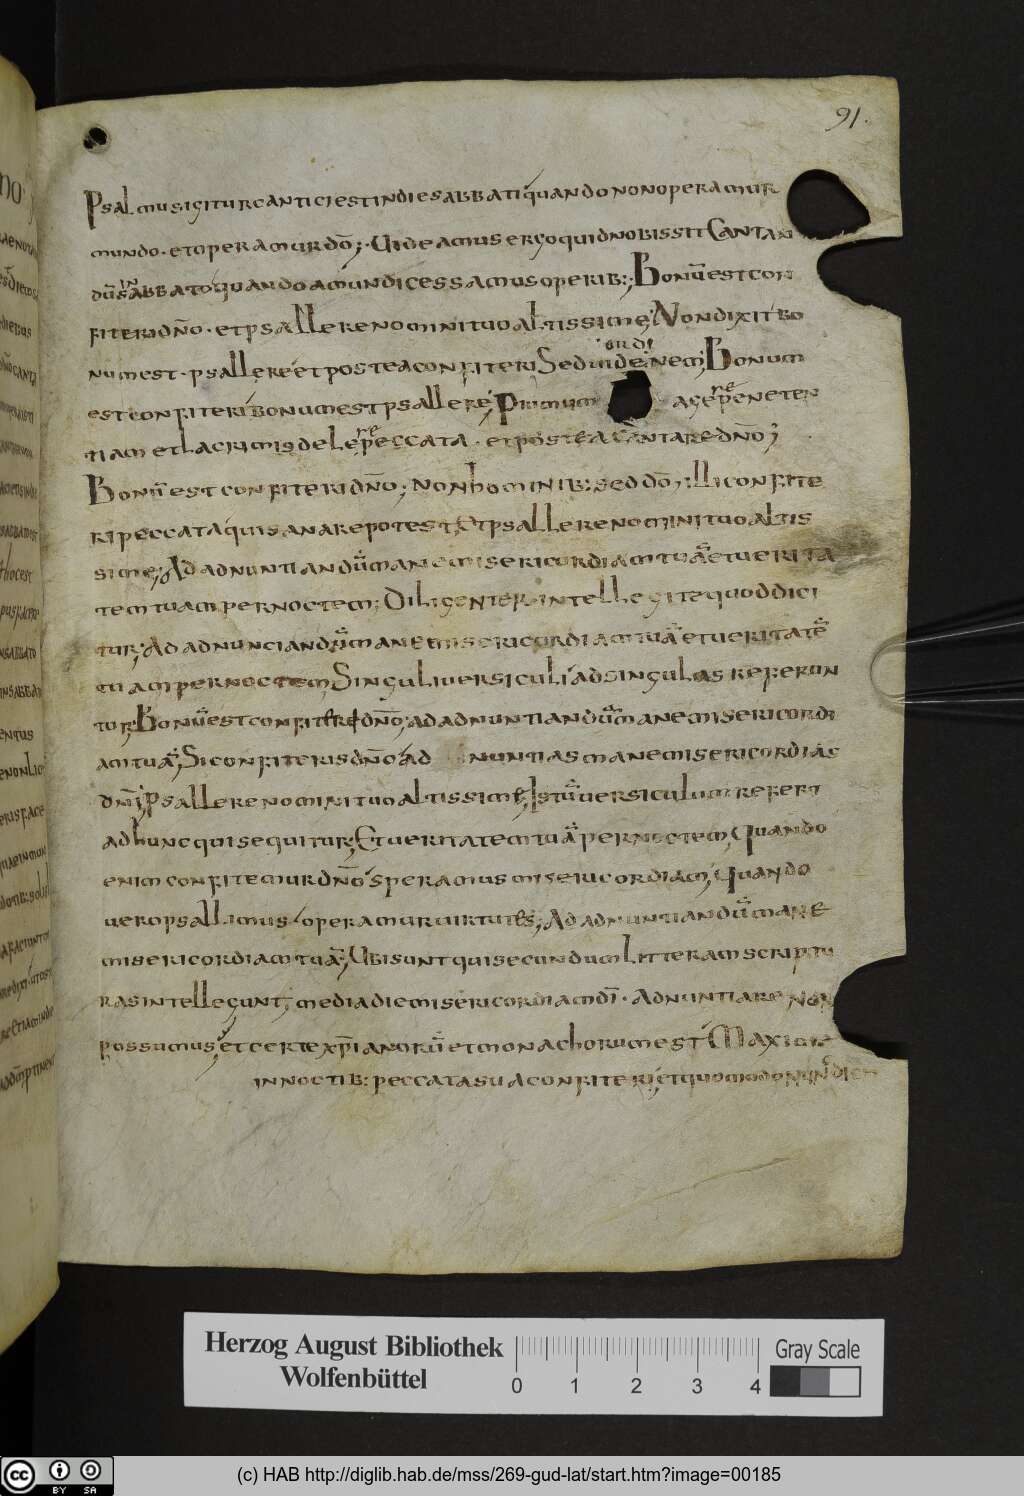 91.
Psalmus igitur cantici est in die sabbati quando non operamur
mundo· et operamur dō; Uideamus ergo quid nobis sit Cantan
dū in sabbato quando a mundi cessamus operib:; Bonū est con
fiteri dño· et psallere nomini tuo altissime; Non dixit bo
num est· psallere et postea confiteri Sed uide ordinem; Bonum
est confiteri bonum est psallere; Primum agere peneten
tiam et lacrimis delere peccata· et postea cantare dño;
Bonū est confiteri dño; non hominib: sed dō; illi confite
ri peccata qui sanare potest; Et psallere nomini tuo altis
sime; Ad adnuntiandū mane misericordiam tuā et uerita
tem tuam per noctem; Diligenter intellegite quod dici
tur; Ad adnunciandū mane misericordiam tuā et ueritatē
tuam per noctem Singuli uersiculi ad singulas referun
tur; Bonū est confiteri dño; ad adnuntiandū mane misericordi
am tuā; Si confiteris dño ad nuntias mane misericordiās
dñi; Psallere nomini tuo altissime; Istū uersiculum refert
ad hunc qui sequitur; Et ueritatem tuā per noctem; Quando
enim confitemur dño speramus misericordiam; Quando
uero psallimus operamur uirtutes; Ad adnuntiandū mane
misericordiam tuā; Ubi sunt qui secundum litteram scriptu
ras intellegunt; media die misericordiam dī· adnuntiare non
possumus; et certe xp̄ianorū et monachorum est Maxime
in noctib: peccata sua confiteri; et quomodo nunc dici
Herzog August Bibliothek
Wolfenbüttel
0 1 2 3 4
Gray Scale
cc BY SA
(c) HAB http://diglib.hab.de/mss/269-gud-lat/start.htm?image=00185